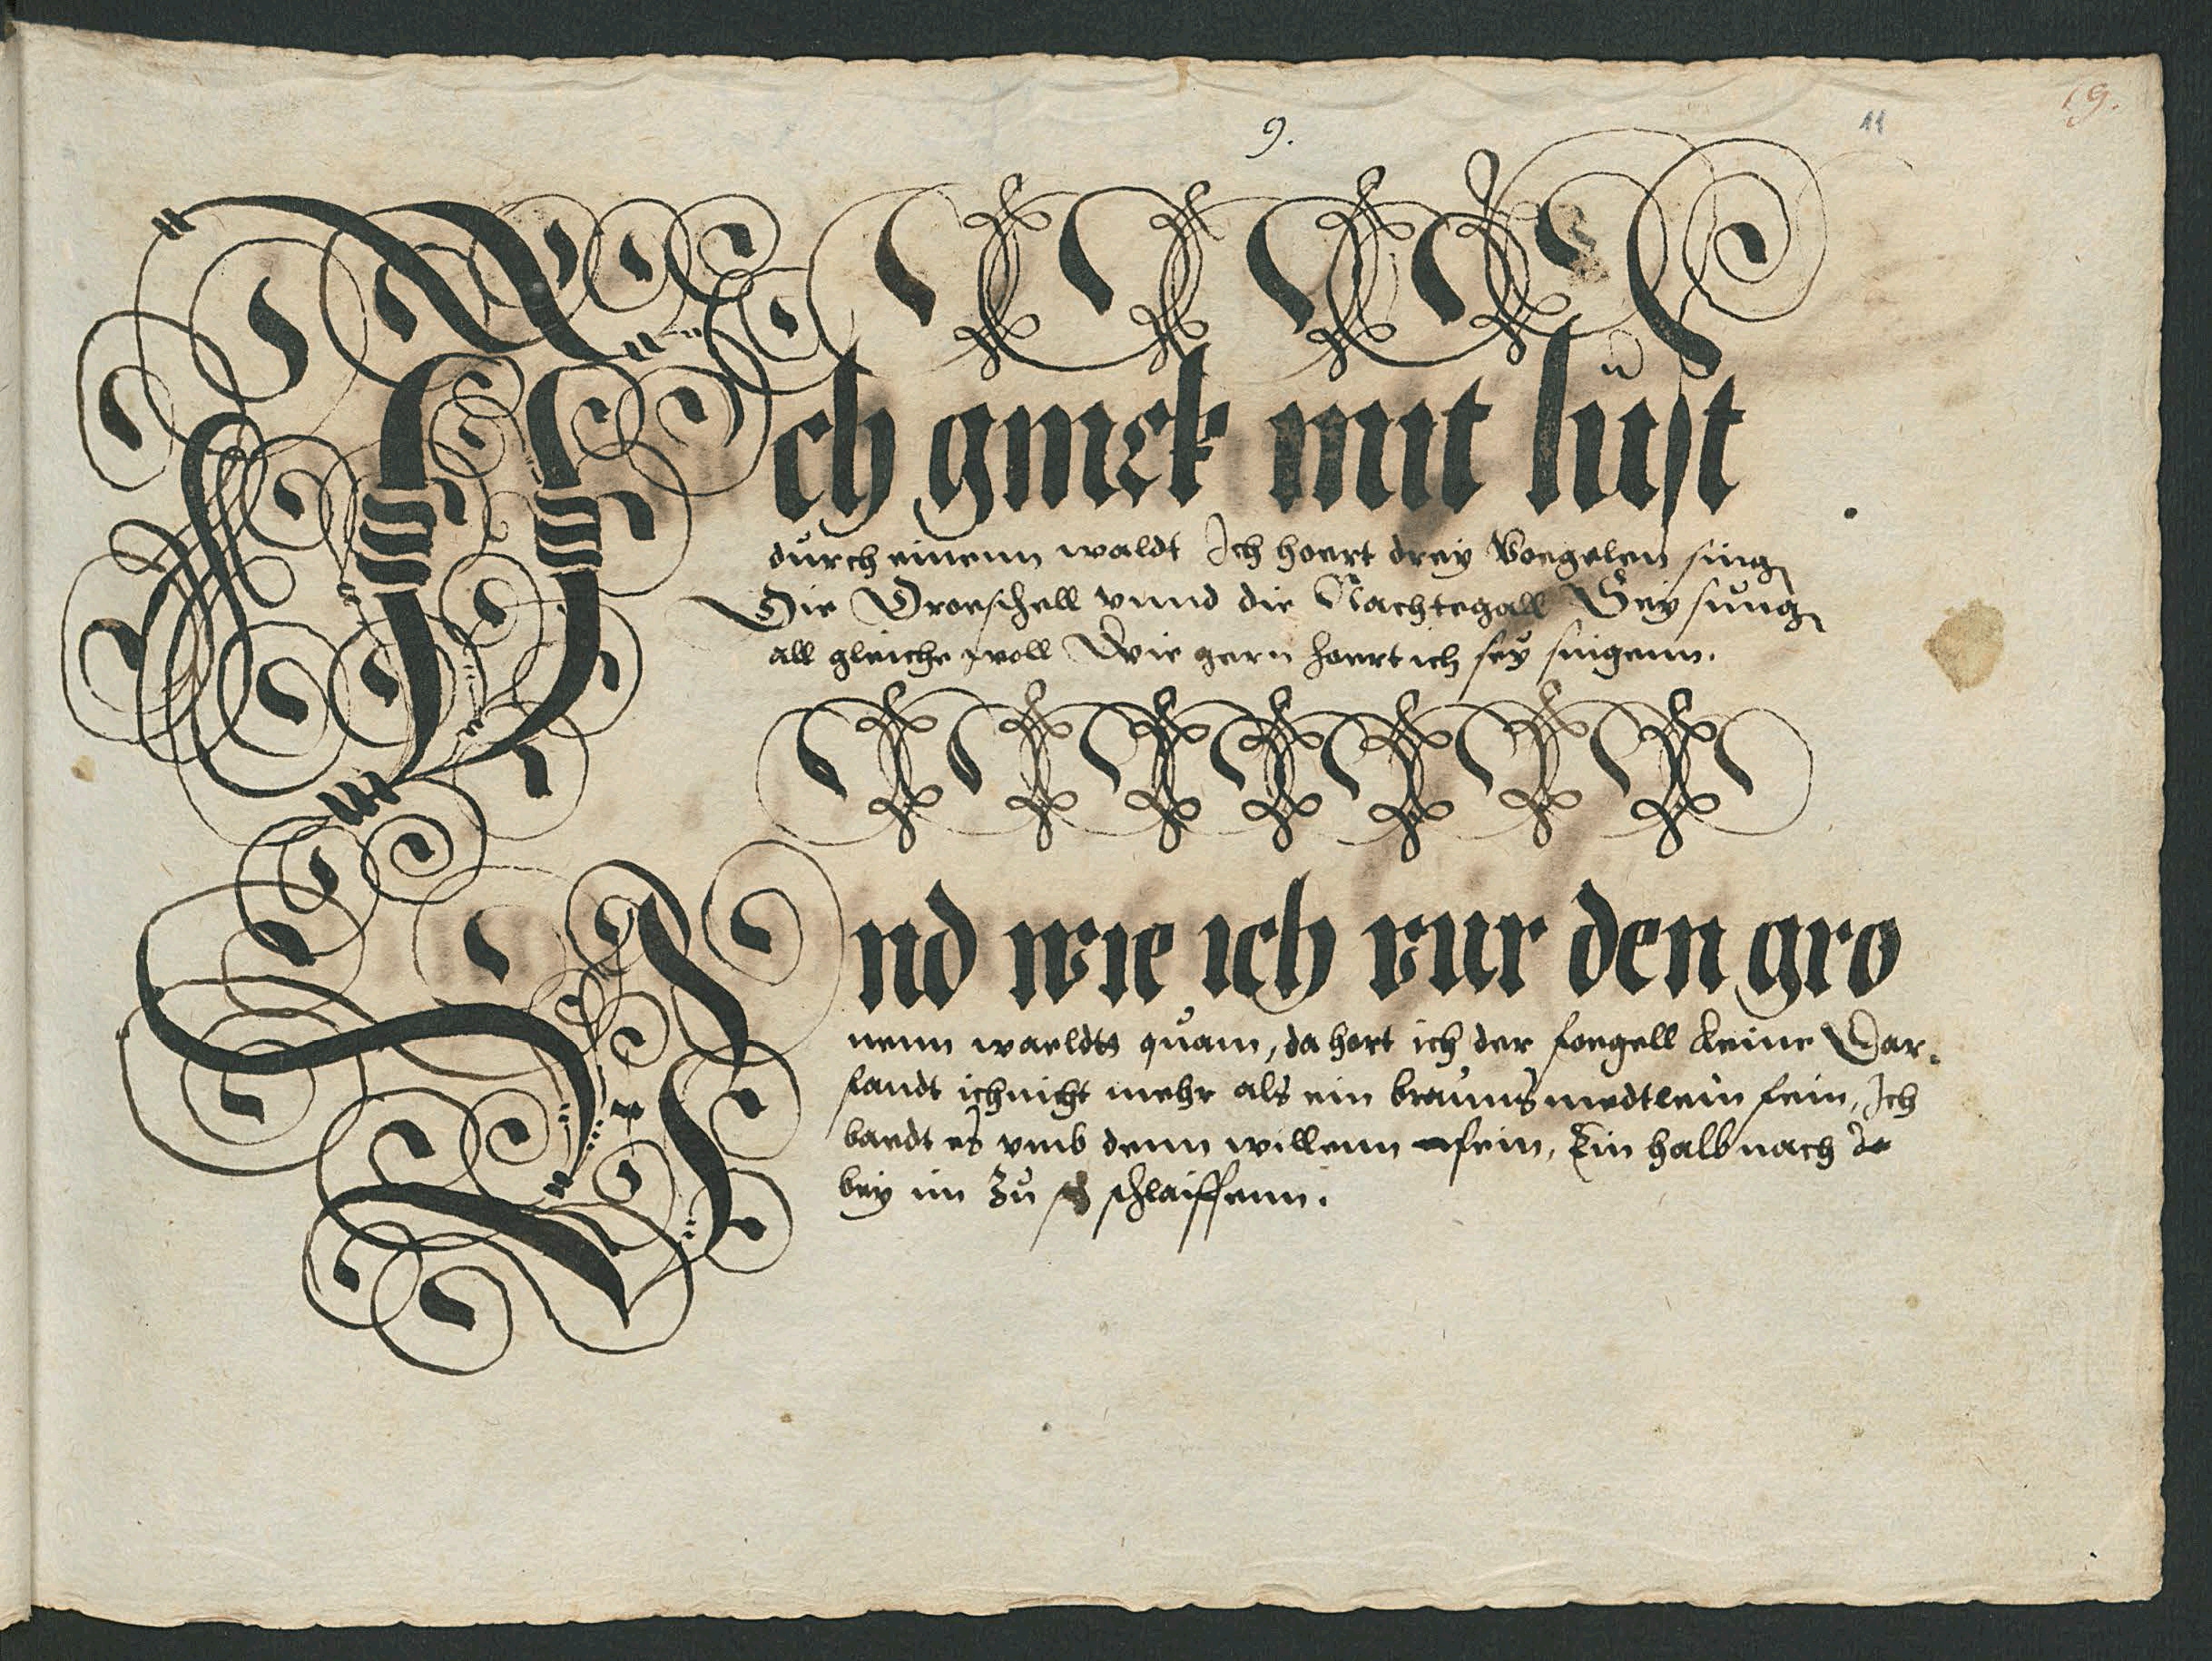 9.
11
19.
Ich ginck mit lust
durch einenn waldt Ich hoert drey Voegelen sing
Die Droeschell vnnd die Nachtegall Sey sung
all gleiche woll Wie gern hoert ich sey singenn.
Vnd wie ich vur den gro
nenn waeldts quam, da hort ich der foegell keine Dar.
fandt ich nicht mehr als ein brauns medtlein fein, Ich
baedt es vmb denn willenn sein, Ein halb nach
bey im zu schlaiffenn.